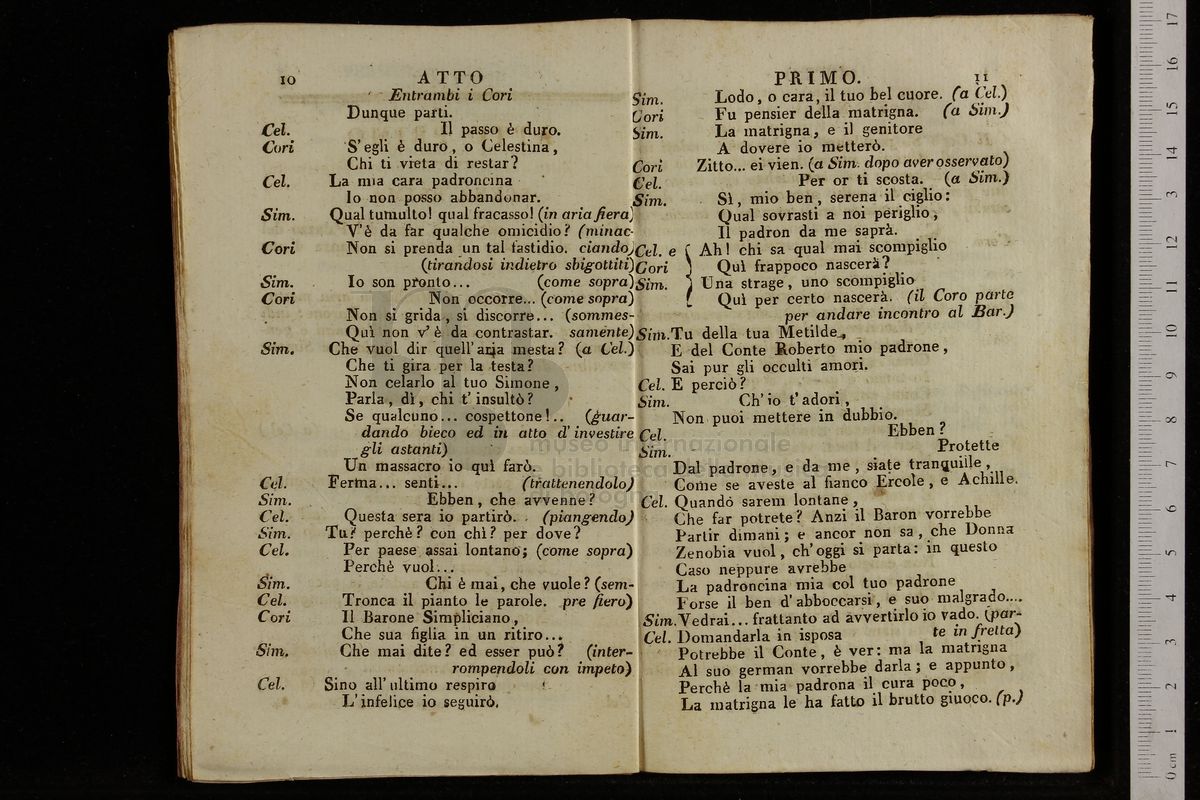 10 ATTO
Entrambi i Cori
Dunque parti.
Cel. Il passo è duro.
Cori S'egli è duro, o Celestina,
Chi ti vieta di restar?
Cel. La mia cara padroncina
Io non posso abbandonar.
Sim. Qual tumulto! qual fracasso! (in aria fiera)
V'è da far qualche omicidio? (minac-
Cori Non si prenda un tal fastidio. ciando)
(tirandosi indietro sbigottiti)
Sim. Io son pronto... (come sopra)
Cori Non occorre... (come sopra)
Non si grida, si discorre... (sommes-
Quì non v'è da contrastar. samente)
Sim. Che vuol dir quell'aria mesta? (a Cel.)
Che ti gira per la testa?
Non celarlo al tuo Simone,
Parla, dì, chi t'insultò?
Se qualcuno... cospettone!.. (guar-
dando bieco ed in atto d'investire
gli astanti)
Un massacro io quì farò.
Cel. Ferma... senti... (trattenendolo)
Sim. Ebben, che avvenne?
Cel. Questa sera io partirò. (piangendo)
Sim. Tu? perchè? con chì? per dove?
Cel. Per paese assai lontano; (come sopra)
Perchè vuol...
Sim. Chi è mai, che vuole? (sem-
Cel. Tronca il pianto le parole. pre fiero)
Cori Il Barone Simpliciano,
Che sua figlia in un ritiro...
Sim. Che mai dite? ed esser può? (inter-
rompendoli con impeto)
Cel. Sino all'ultimo respiro
L'infelice io seguirò.
PRIMO. 11
Sim. Lodo, o cara, il tuo bel cuore. (a Cel.)
Cori Fu pensier della matrigna. (a Sim.)
Sim. La matrigna, e il genitore
A dovere io metterò.
Cori Zitto... ei vien. (a Sim. dopo aver osservato)
Cel. Per or ti scosta. (a Sim.)
Sim. Sì, mio ben, serena il ciglio:
Qual sovrasti a noi periglio,
Il padron da me saprà.
Cel. e { Ah! chi sa qual mai scompiglio
Cori } Quì frappoco nascerà?
Sim. } Una strage, uno scompiglio
{ Quì per certo nascerà. (il Coro parte
per andare incontro al Bar.)
Sim. Tu della tua Metilde,
E del Conte Roberto mio padrone,
Sai pur gli occulti amori.
Cel. E perciò?
Sim. Ch'io t'adori,
Non puoi mettere in dubbio.
Cel. Ebben?
Sim. Protette
Dal padrone, e da me, siate tranquille,
Come se aveste al fianco Ercole, e Achille.
Cel. Quando sarem lontane,
Che far potrete? Anzi il Baron vorrebbe
Partir dimani; e ancor non sa, che Donna
Zenobia vuol, ch'oggi si parta: in questo
Caso neppure avrebbe
La padroncina mia col tuo padrone
Forse il ben d'abboccarsi, e suo malgrado....
Sim. Vedrai... frattanto ad avvertirlo io vado. (par-
Cel. Domandarla in isposa te in fretta)
Potrebbe il Conte, è ver: ma la matrigna
Al suo german vorrebbe darla; e appunto,
Perchè la mia padrona il cura poco,
La matrigna le ha fatto il brutto giuoco. (p.)
museo internazionale
biblioteca della musica
0 cm 1 2 3 4 5 6 7 8 9 10 11 12 13 14 15 16 17